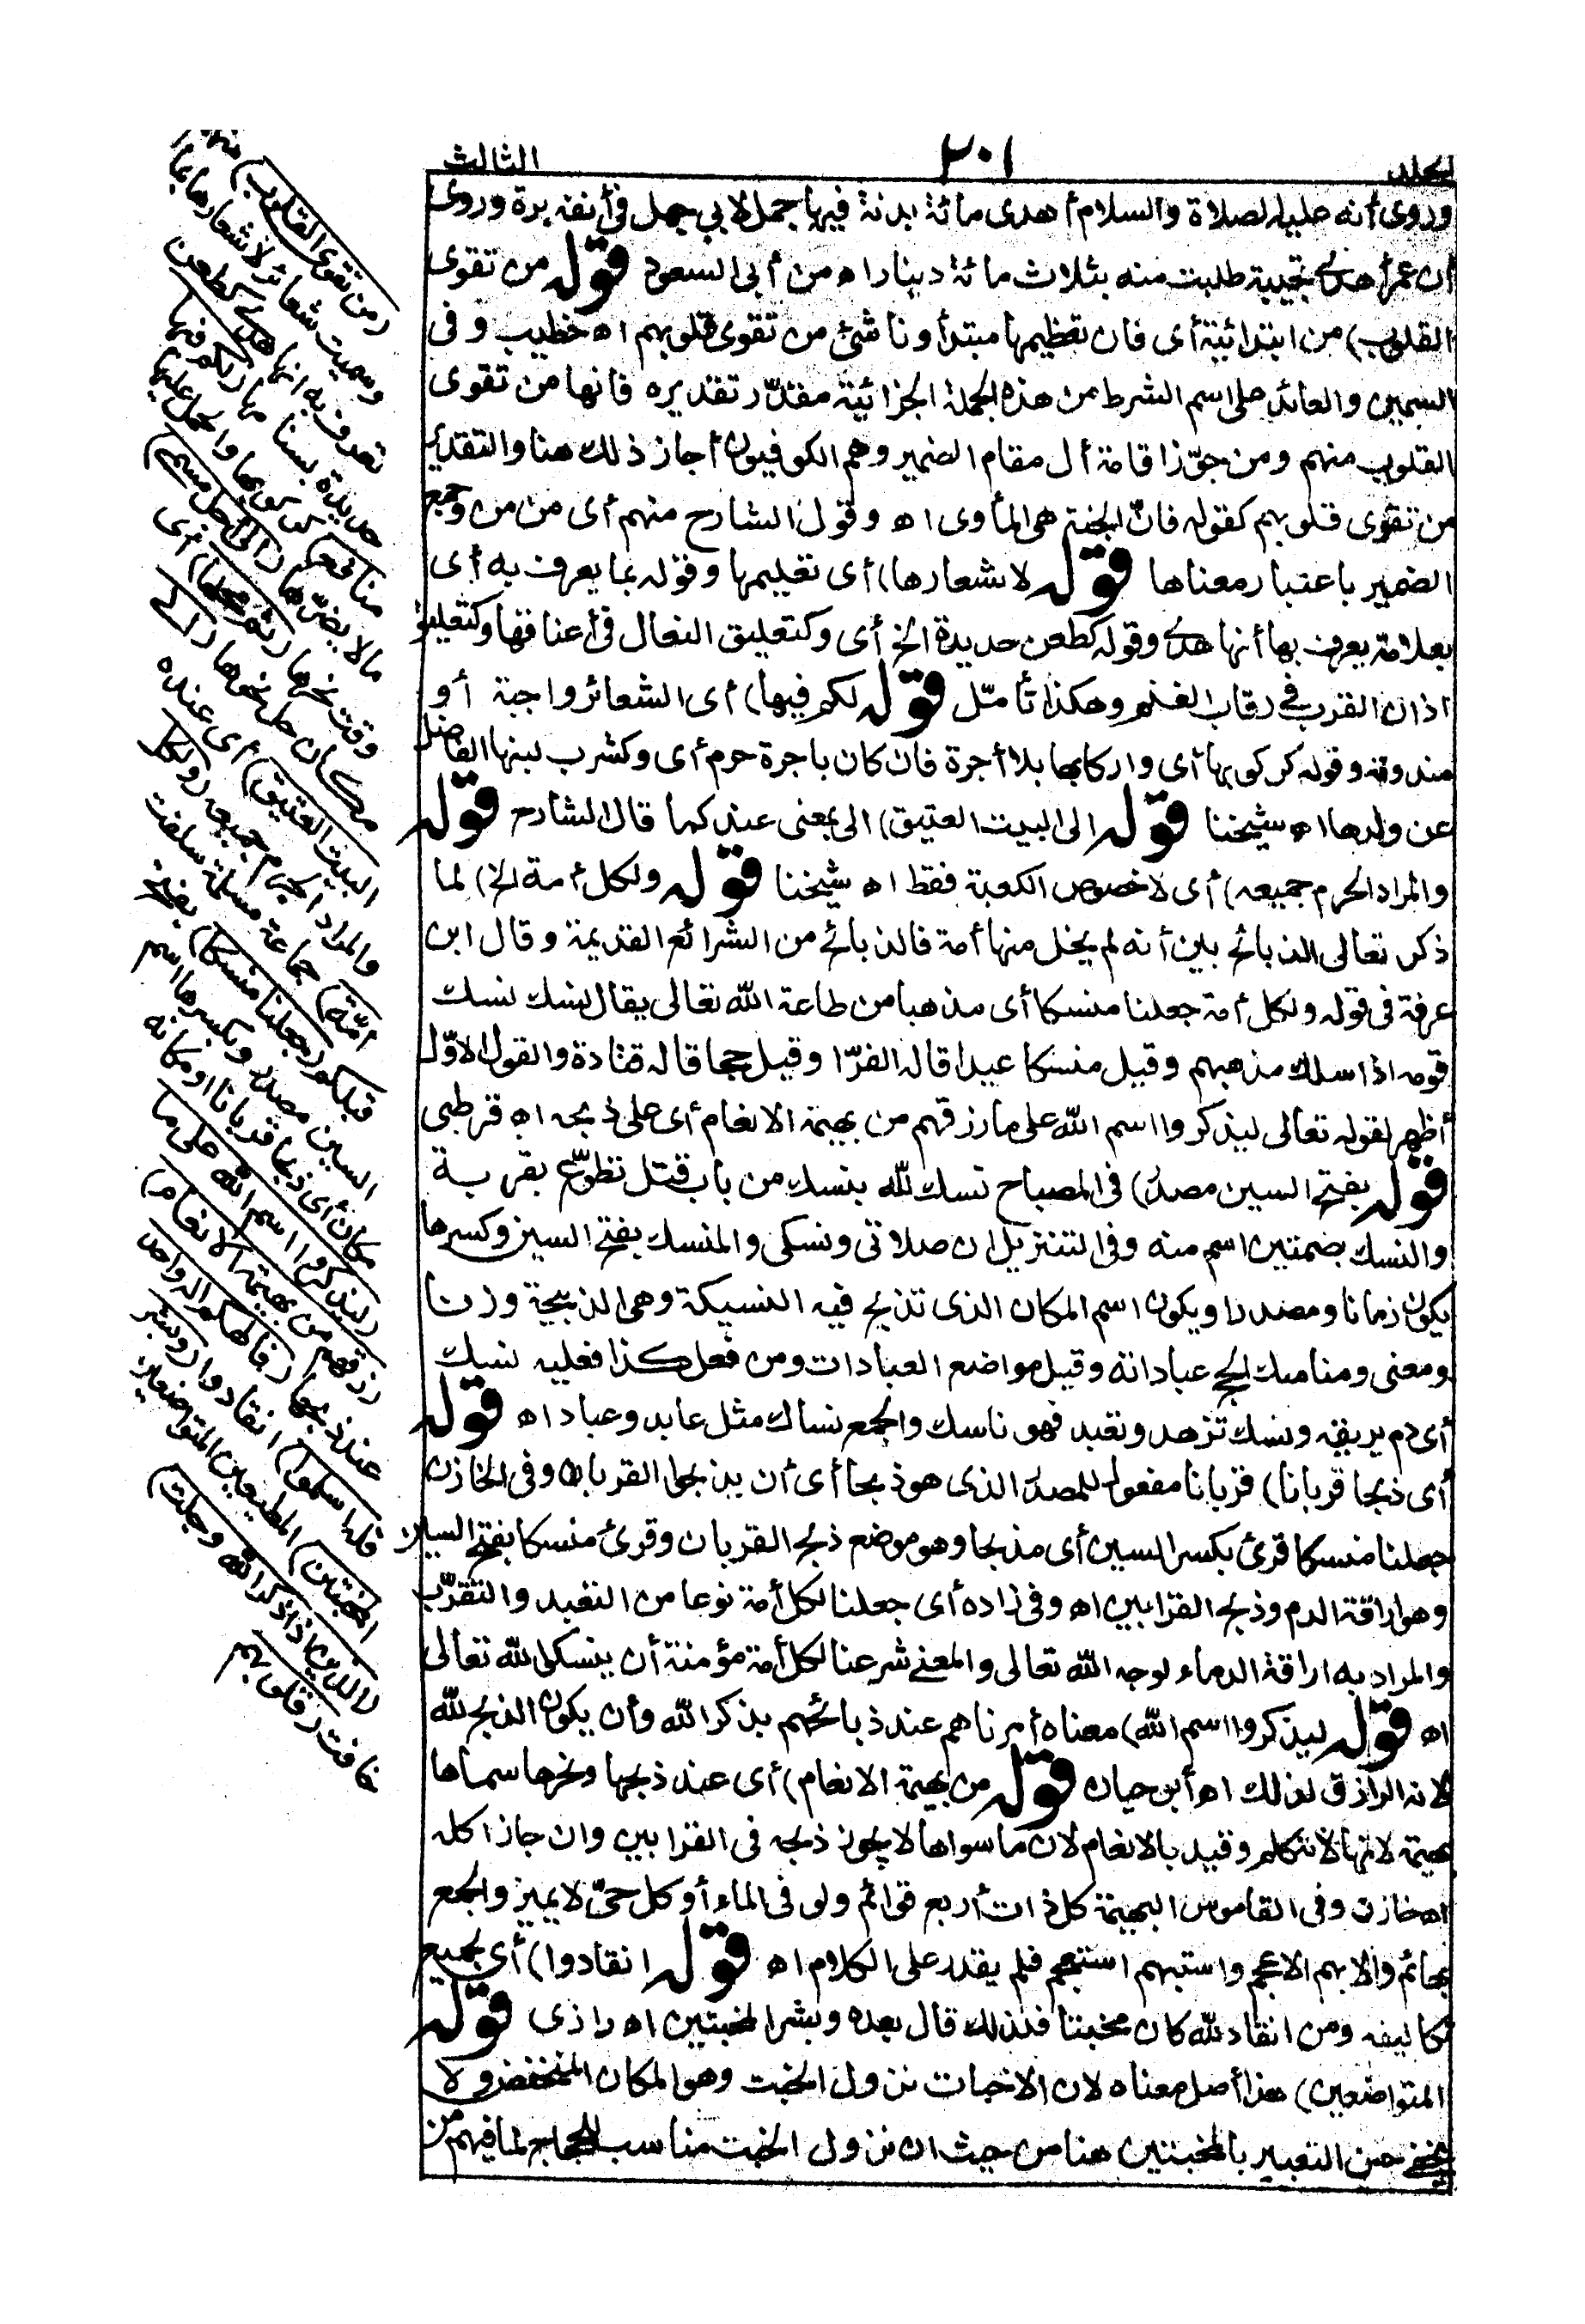 المجلد
٢٠١
الثالث
وروى أنه عليه الصلاة والسلام أهدى مائة بدنة فيها جمل لابي جهل في أنفه برة وروى
أن عمر أهدى نجيبة طلبت منه بثلاث مائة دينار اه من أبى السعود قوله من تقوى
القلوب) من ابتدائية أى فان تعظيمها مبتدأ وناشئ من تقوى قلوبهم اه خطيب وفى
السمين والعائد على اسم الشرط من هذه الجملة الجزائية مقدّر تقديره فانها من تقوى
القلوب منهم ومن جوّز اقامة أل مقام الضمير وهم الكوفيون أجاز ذلك هنا والتقدير
من تقوى قلوبهم كقوله فانّ الجنة هى المأوى اه وقول الشارح منهم أى من من وجمع
الضمير باعتبار معناها قوله لاشعارها) أى تعليمها وقوله بما يعرف به أى
بعلامة يعرف بها أنها هدى وقوله كطعن حديدة الخ أى وكتعليق النعال فى أعناقها وكتعليق
اذان القرب فى رقاب الغنم وهكذا تأمّل قوله لكم فيها) أى الشعائر واجبة أو
مندوبة وقوله كركوبها أى واركابها بلا أجرة فان كان باجرة حرم أى وكشرب لبنها الفاضل
عن ولدها اه شيخنا قوله الى البيت العتيق) الى بمعنى عند كما قال الشارح قوله
والمراد الحرم جميعه) أى لا خصوص الكعبة فقط اه شيخنا قوله ولكل أمة الخ) لما
ذكر تعالى الذبائح بين أنه لم يخل منها أمة فالذبائح من الشرائع القديمة وقال ابن
عرفة فى قوله ولكل أمة جعلنا منسكا أى مذهبا من طاعة الله تعالى يقال نسك نسك
قومه اذا سلك مذهبهم وقيل منسكا عيدا قاله الفرّا وقيل حجا قاله قتادة والقول الاوّل
أظهر لقوله تعالى ليذكروا اسم الله على ما رزقهم من بهيمة الانعام أى على ذبحه اه قرطبى
قوله بفتح السين مصدر) فى المصباح نسك لله ينسك من باب قتل تطوّع بقربة
والنسك بضمتين اسم منه وفى التنزيل ان صلاتى ونسكى والمنسك بفتح السين وكسرها
يكون زمانا ومصدرا ويكون اسم المكان الذى تذبح فيه النسيكة وهى الذبيحة وزنا
ومعنى ومناسك الحج عباداته وقيل مواضع العبادات ومن فعل كذا فعليه نسك
أى دم يريقه ونسك تزهد وتعبد فهو ناسك والجمع نساك مثل عابد وعباد اه قوله
أى ذبحا قربانا) قربانا مفعول للمصدر الذى هو ذبحا أى أن يذبحوا القربان وفى الخازن
جعلنا منسكا قرئ بكسر السين أى مذبحا وهو موضع ذبح القربان وقرئ منسكا بفتح السين
وهو اراقة الدم وذبح القرابين اه وفى زاده أى جعلنا لكل أمة نوعا من التعبد والتقرّب
والمراد به اراقة الدماء لوجه الله تعالى والمعنى شرعنا لكل أمة مؤمنة أن ينسكوا لله تعالى
اه قوله ليذكروا اسم الله) معناه أمرناهم عند ذبائحهم بذكر الله وأن يكون الذبح لله
لانه الرازق لذلك اه أبن حيان قوله من بهيمة الانعام) أى عند ذبحها ونحرها سماها
بهيمة لانها لا تتكلم وقيد بالانعام لان ما سواها لا يجوز ذبحه فى القرابين وان جاز أكله
اه خازن وفى القاموس البهيمة كل ذات أربع قوائم ولو فى الماء أو كل حىّ لا يميز والجمع
بهائم والابهم الاعجم واستبهم استعجم فلم يقدر على الكلام اه قوله انقادوا) أى بجميع
تكاليفه ومن انقاد لله كان مخبتا فلذلك قال بعده وبشر المخبتين اه رازى قوله
المتواضعين) هذا أصل معناه لان الاخبات نزول الخبت وهو المكان المنخفض ولا
يخفى حسن التعبير بالمخبتين هنا من حيث ان نزول الخبت مناسب للحجاج لما فيهم من
(من تقوى القلوب)
وسميت شعائر لاشعارها بما
تعرف به انها هدى كطعن
حديدة بسنامها (لكم فيها
منافع) كركوبها والحمل عليها
ما لا يضرّها (الى أجل مسمى)
وقت نحرها (ثم محلها) أى
مكان حل نحرها (الى
البيت العتيق) أى عنده
والمراد الحرم جميعه (ولكل
أمّة) جماعة مسلمة سلفت
قبلكم (جعلنا منسكا) بفتح
السين مصدر وبكسرها اسم
مكان أى ذبحا قربانا او مكانه
(ليذكروا اسم الله على ما
رزقهم من بهيمة الانعام)
عند ذبحها (فالهكم اله واحد
فله أسلموا) انقادوا (وبشر
المخبتين) المطيعين المتواضعين
(الذين اذا ذكر الله وجلت)
خافت (قلوبهم